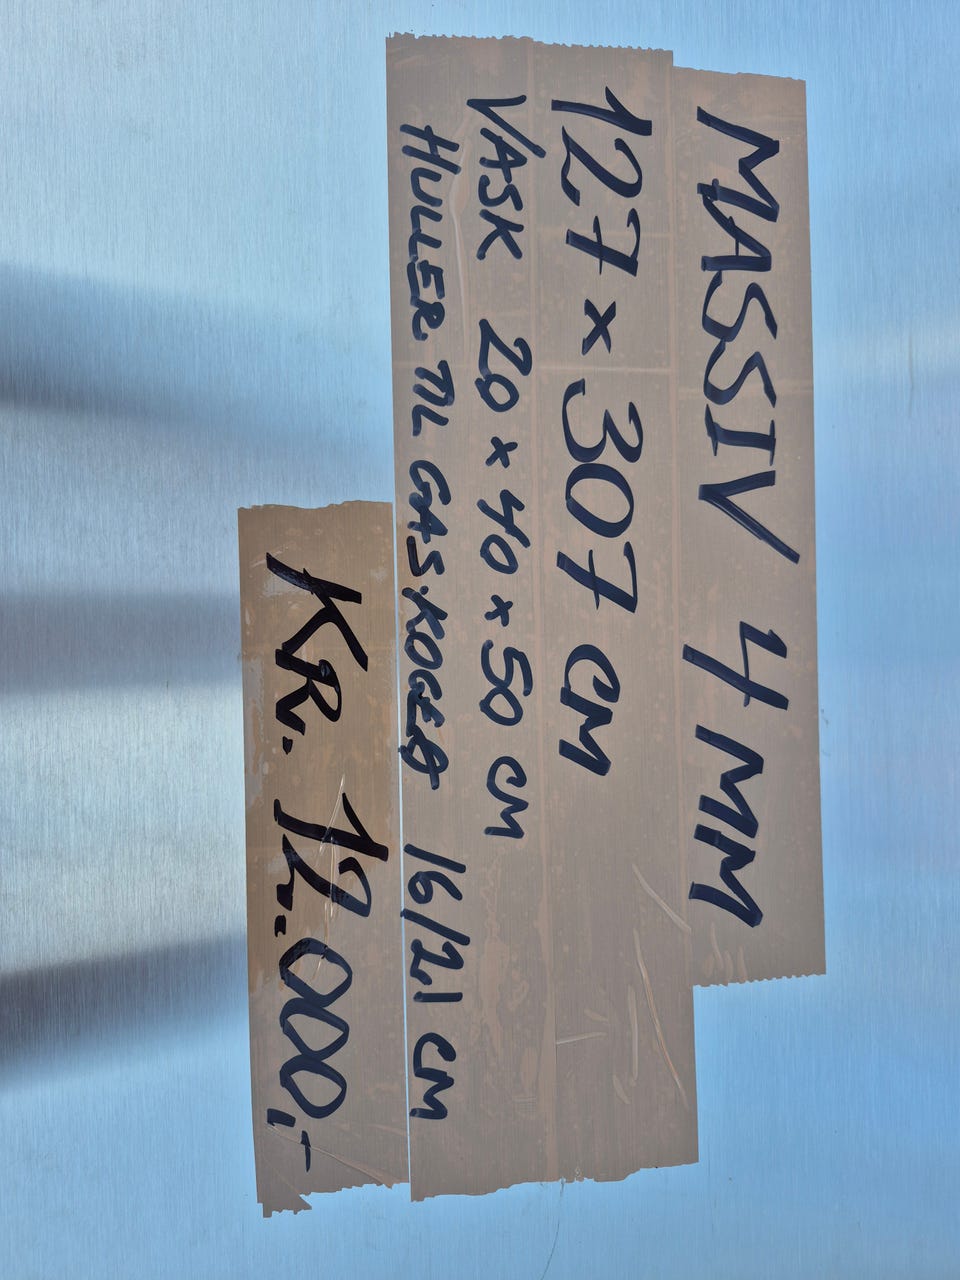 MASSIV 4 MM
127 x 307 CM
VASK 20 x 40 x 50 CM
HULLER TIL GAS.KOGER 16/21 CM
KR. 12.000,-